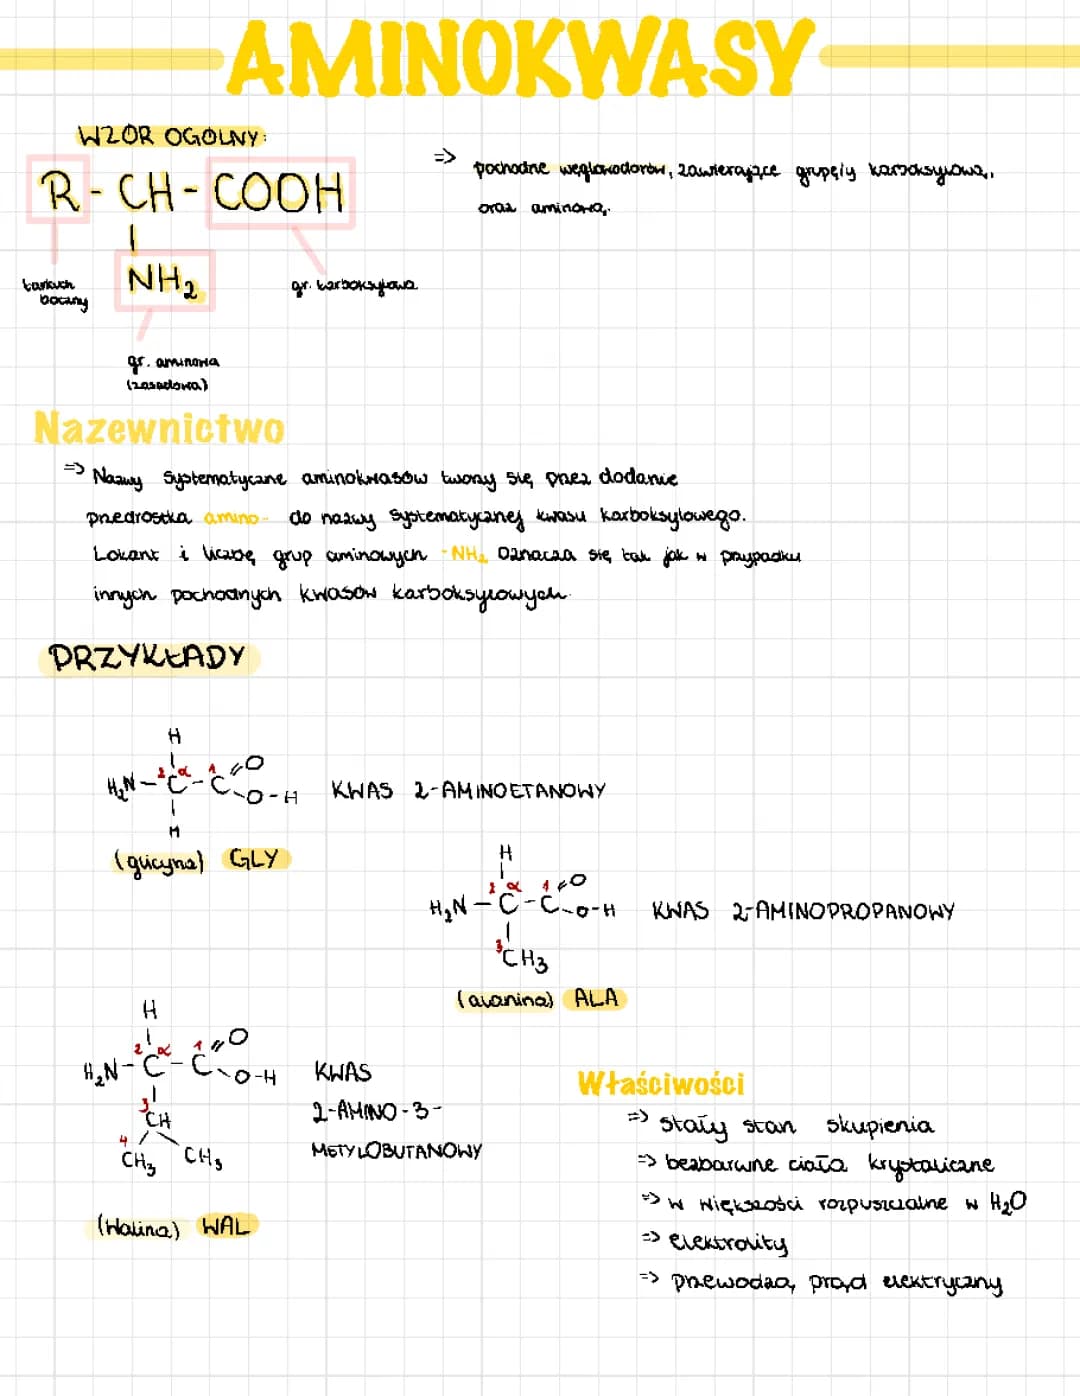 AMINOKWASY
WZÓR OGÓLNY:
R - CH - COOH
NH₂
łańcuch
boczny
gr. karboksylowa
gr. aminowa
(zasadowa)
=> pochodne węglowodorów, zawierające grupę/y karboksylową,
oraz aminową.
Nazewnictwo
=> Nazwy systematyczne aminokwasów tworzy się przez dodanie
przedrostka amino- do nazwy systematycznej kwasu karboksylowego.
Lokant i liczbę grup aminowych -NH₂ oznacza się tak jak w przypadku
innych pochodnych kwasów karboksylowych.
PRZYKŁADY
H
2 α 1 O
H₂N - C - C
O - H
H
KWAS 2-AMINOETANOWY
(glicyna) GLY
H
2 α 1 O
H₂N - C - C
O-H
3 CH₃
KWAS 2-AMINOPROPANOWY
(alanina) ALA
H
2 α 1 O
H₂N - C - C
O-H
3 CH
4 CH₃ CH₃
KWAS
2-AMINO-3-
METYLOBUTANOWY
(Walina) WAL
Właściwości
=> stały stan skupienia
=> bezbarwne ciała krystaliczne
=> w większości rozpuszczalne w H₂O
=> elektrolity
=> przewodzą prąd elektryczny